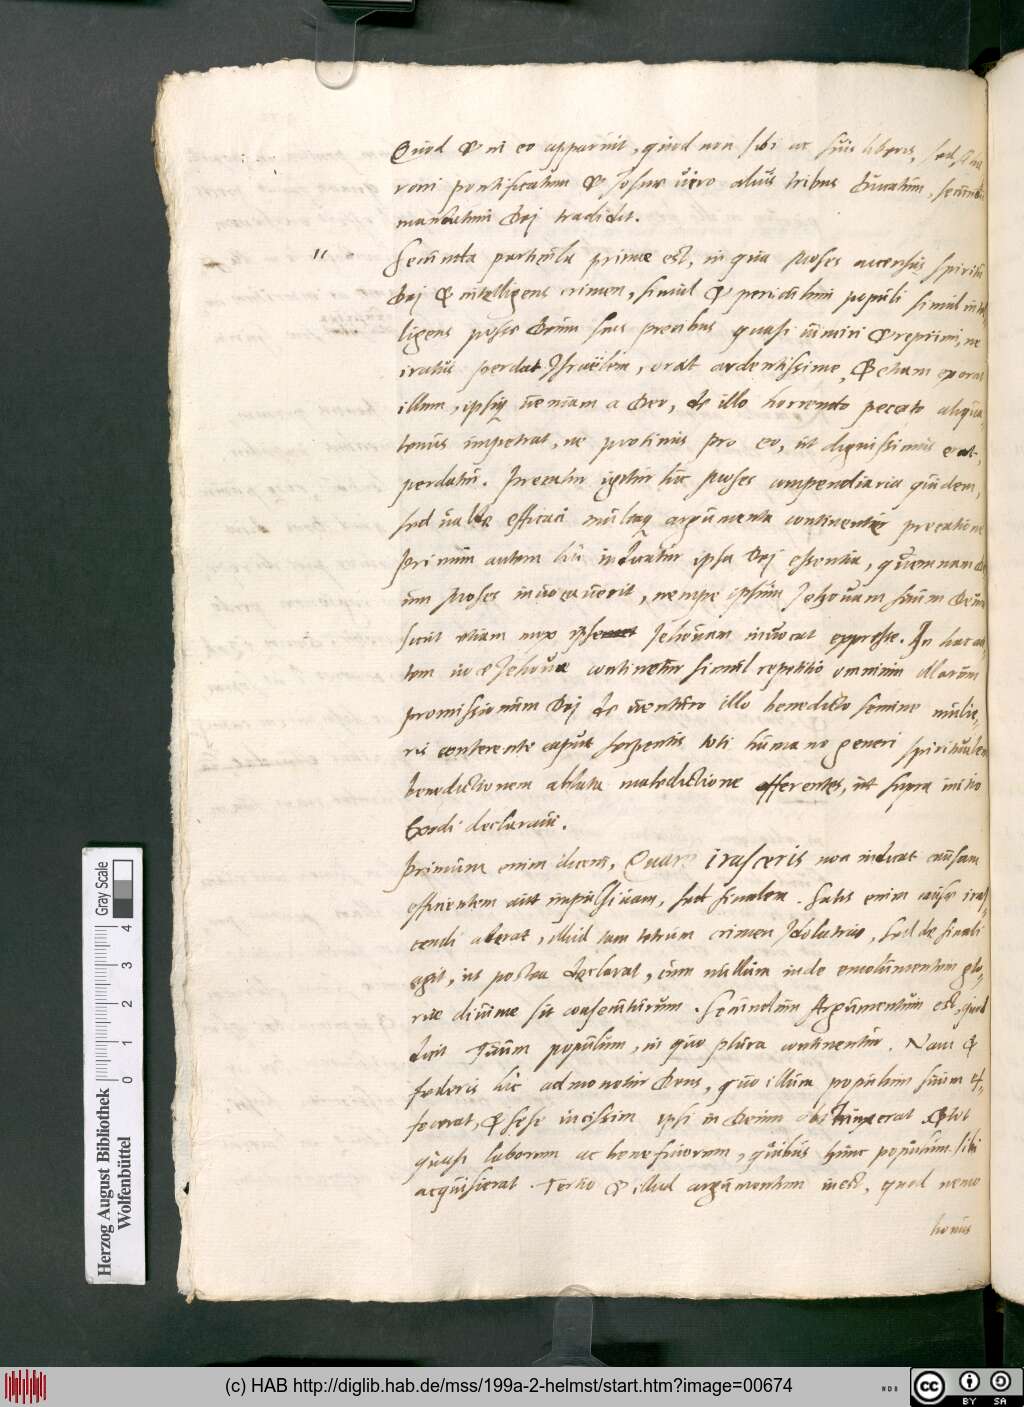 Quod & in eo apparuit, quod non sibi ac suis liberis, sed, Aa
roni pontificatum & Josuae vero alius tribus ducatum, secundū
mandatum Dej tradidit.
11 Secunda particula primae est, in qua Moses accensus spiritu
Dej & intelligens crimen, simul & periculum populi simul intel
ligens posse Deum suis precibus quasi & reprimi, ne
iratus perdat Israëlem, orat ardentissime, & etiam exorat
illum, ipsiq veniam a Deo, de illo horrendo peccato aliqua
tenus impetrat, ne protinus pro eo, ut dignissimus erat,
perdatur. Precatur igitur hic Moses compendiaria quidem,
sed valde efficaci multaq argumenta continente precatione
Primum autem hic indicatur ipsa Dej essentia, quemnam De
um Moses invocaverit, nempe ipsum Jehovam suum Deum
sicut etiam mox Jehovam invocat expresse. In hac au
tem voce Jehova continetur simul repetitio omnium illarum
promissionum Dej de venturo illo benedicto semine mulie,
ris conterente caput serpentis toti humano generi spiritualem
benedictionem ablata maledictione offerentes, ut supra initio
Exodi declaravi.
Primum enim dicens, Quare irasceris non indicat causam
efficientem aut impulsivam, sed finalem. Satis enim causae iras,
cendi aderat, illud tam tetrum crimen Idolatriae, sed de finali
agit, ut postea declarat, cum nullum inde emolumentum glo,
riae divinae sit consecuturum. Secundum Argumentum est, quod
dicit Tuum populum, in quo plura continentur. Nam &
foederis hic admonetur Deus, quo illum populum suum ef,
fecerat, & sese vicissim ipsi in Deum obstrinxerat, & tot
quasi laborum ac beneficiorum, quibus hunc populum sibi
acquisierat. Tertio & illud argumentum inest, quod nemo
bonus
Herzog August Bibliothek
Wolfenbüttel
0 1 2 3 4
Gray Scale
(c) HAB http://diglib.hab.de/mss/199a-2-helmst/start.htm?image=00674
WDB
cc BY SA